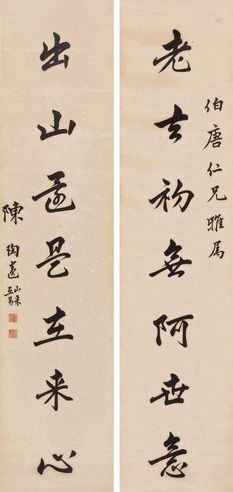 伯唐仁兄雅屬
老去初無阿世意
出山還是在来心
陳陶遺